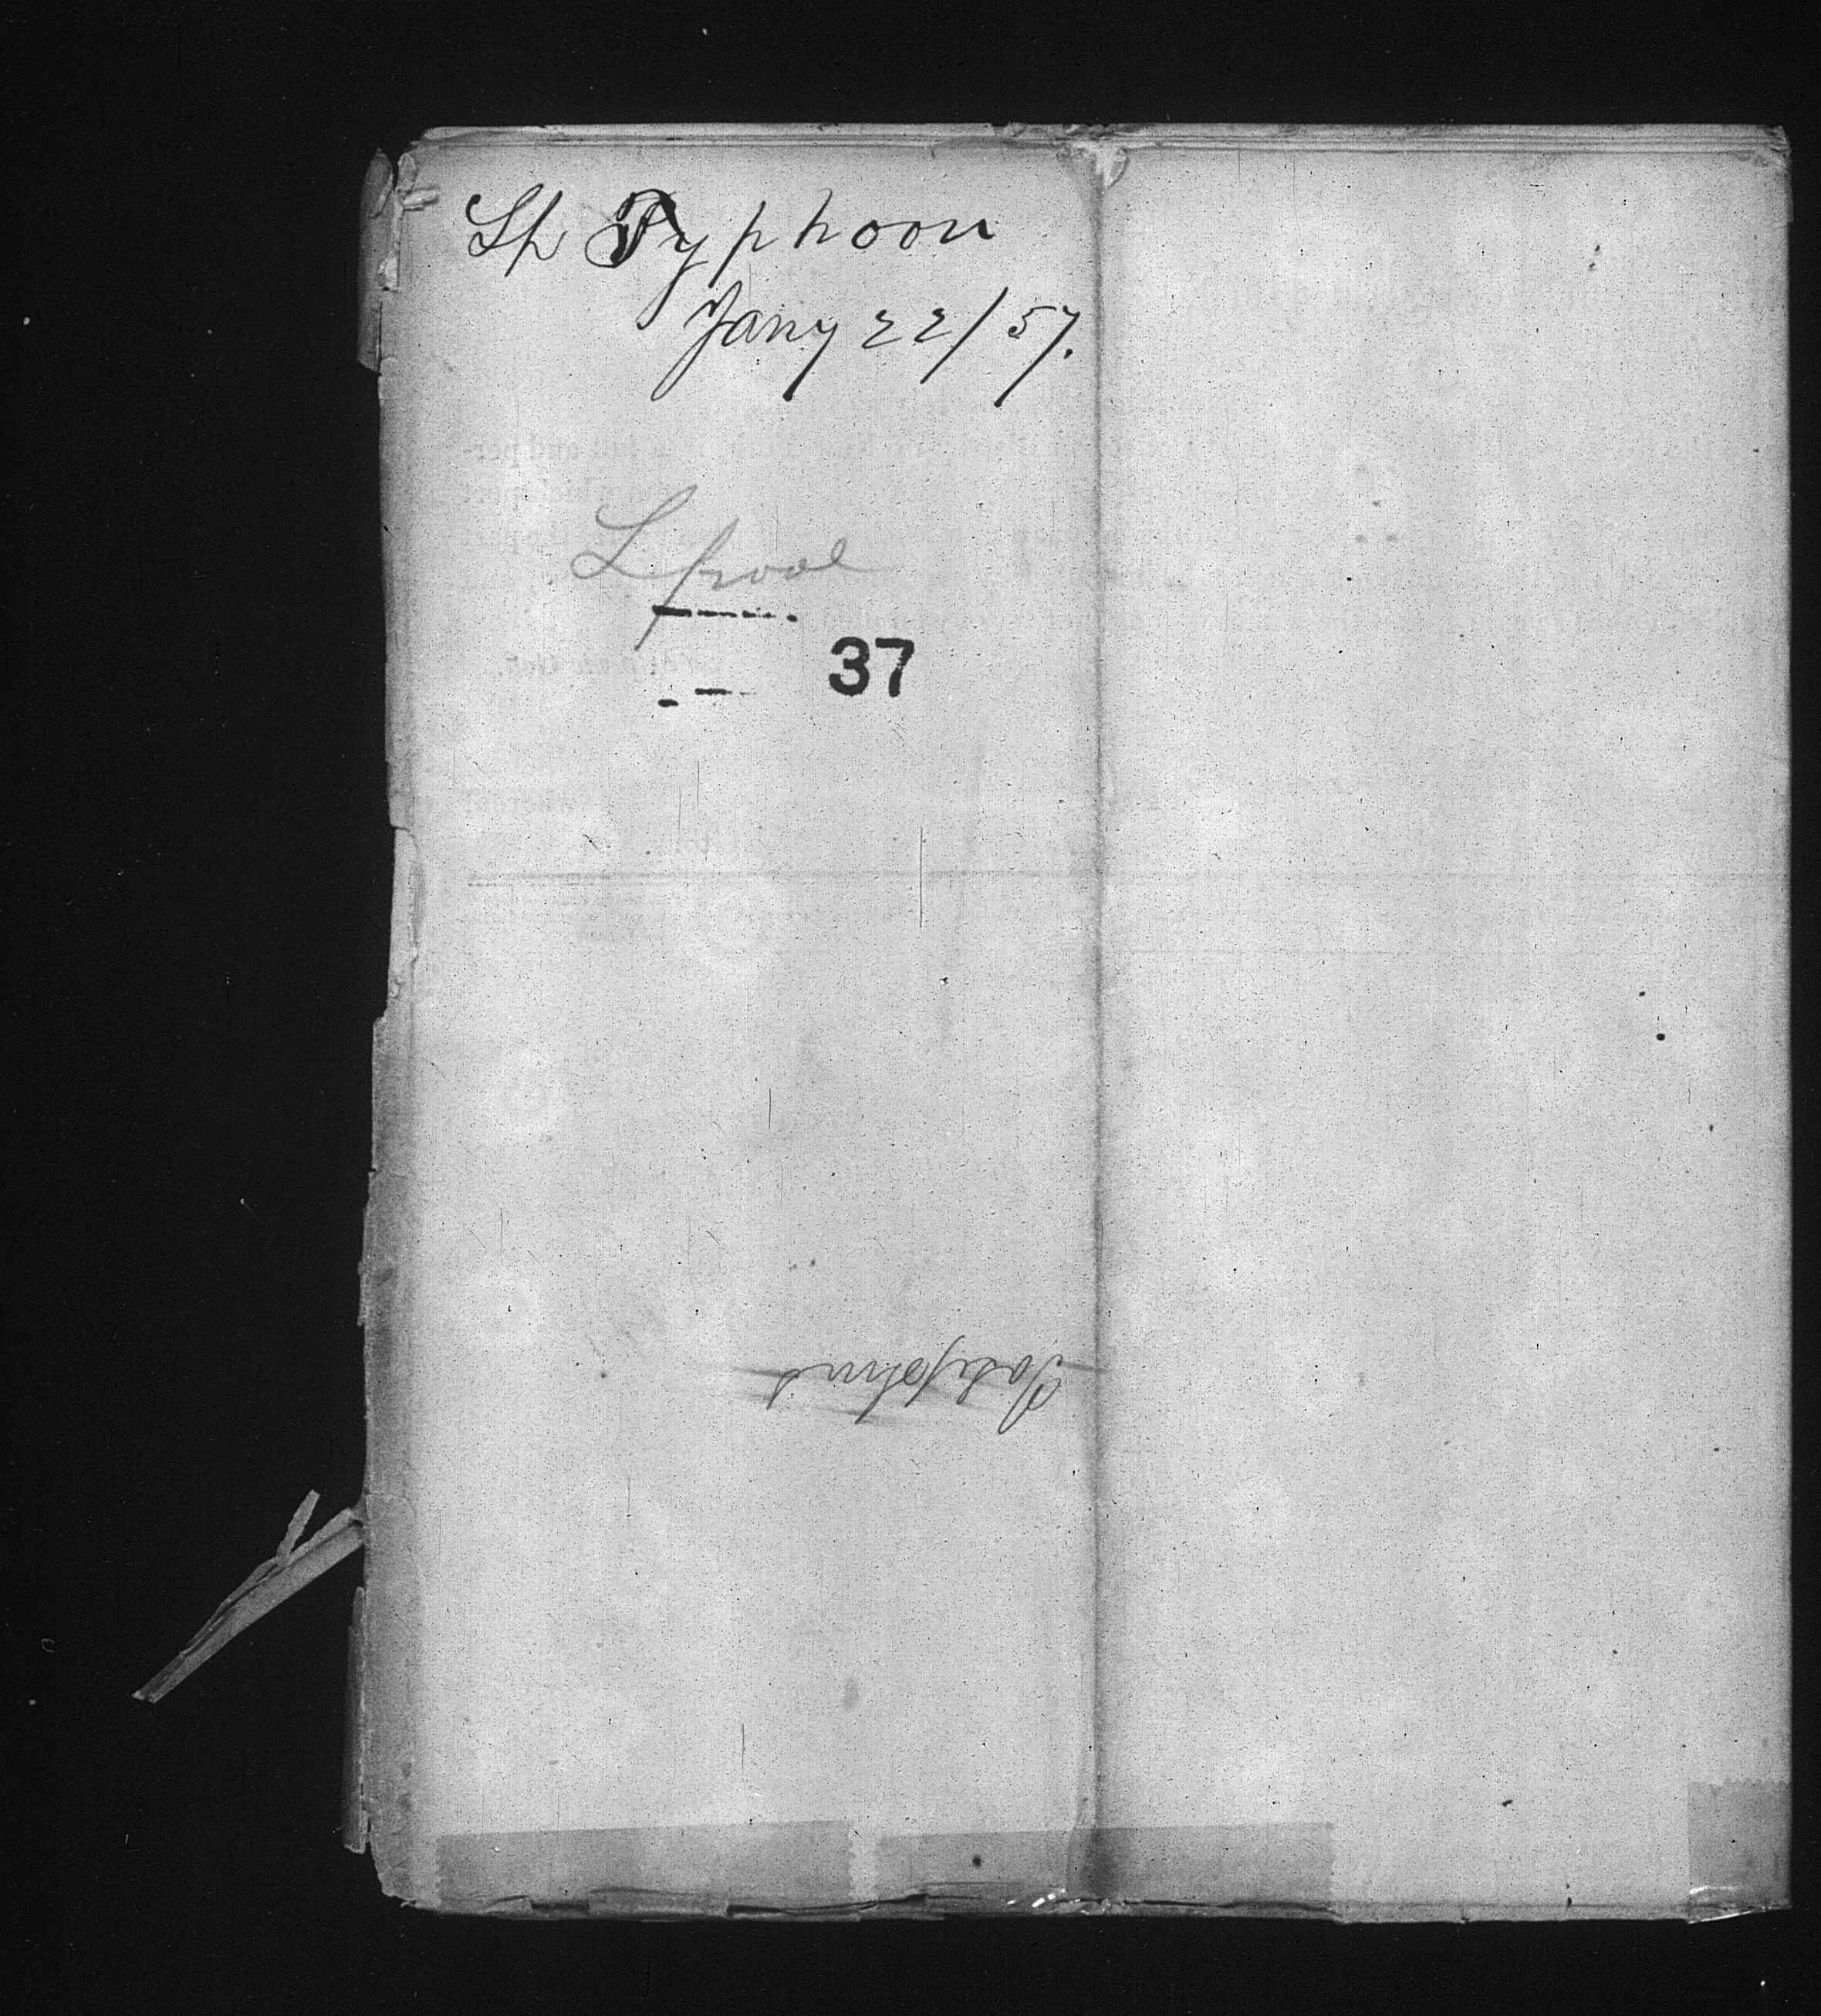 Sh Typhoon
Jany 22/57.
Lpool
37